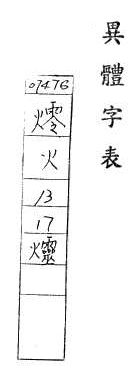 異體字表
07476
燯
火
13
17